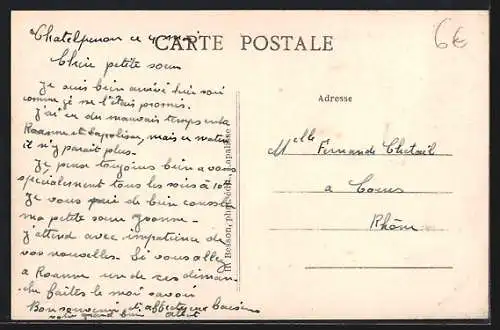 Chatelperron ce 4 mai
6€
CARTE POSTALE
Chère petite sœur
Je suis bien arrivé hier soi
comme je me l'étais promis.
J'ai eu du mauvais temps entre
Roanne et Lapalisse, mais ce matin
il n'y parait plus.
Je pense toujours bien a vous
spécialement tous les soirs à 10h
Je vous prie de bien consoler
ma petite sœur Yvonne.
J'attend avec impatience de
vos nouvelles. Si vous allez
a Roanne un de ces diman
che faites le moi savoir
Bon souvenir et affectueux baisers
votre grand
H. Besson, phot-édit., Lapalisse
Adresse
Melle Fernande Chetail
a Cours
Rhône